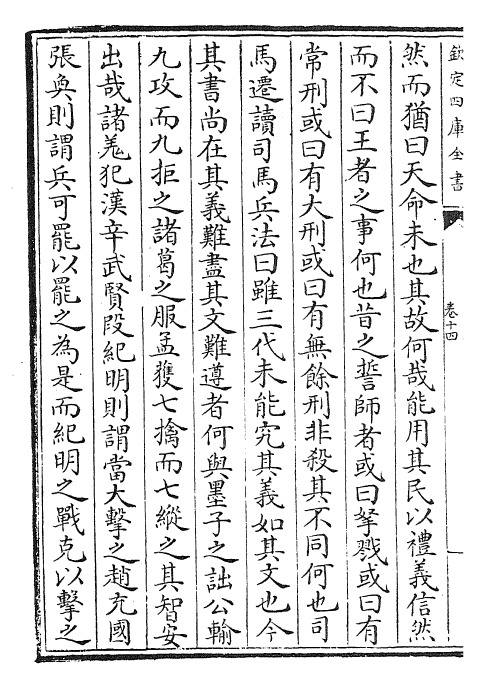 欽定四庫全書
卷十四
然而猶曰天命未也其故何哉能用其民以禮義信然
而不曰王者之事何也昔之誓師者或曰孥戮或曰有
常刑或曰有大刑或曰有無餘刑非殺其不同何也司
馬遷讀司馬兵法曰雖三代未能究其義如其文也今
其書尚在其義難盡其文難遵者何與墨子之詘公輸
九攻而九拒之諸葛之服孟獲七擒而七縱之其智安
出哉諸羗犯漢辛武賢段紀明則謂當大擊之趙充國
張奐則謂兵可罷以罷之為是而紀明之戰克以擊之